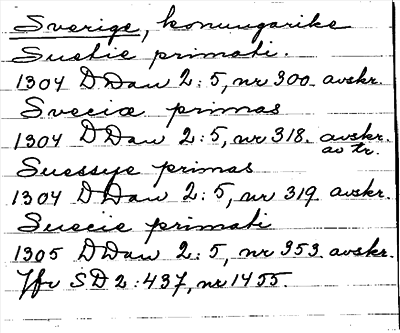 Sverige, konungarike
Suetie primati.
1304 DDan 2:5, nr 300. avskr.
Sveciæ primas
1304 DDan 2:5, nr 318. avskr.
av tr.
Suessye primas
1304 DDan 2:5, nr 319 avskr.
Suecie primati
1305 DDan 2:5, nr 353. avskr.
Jfr SD 2:437, nr 1455.